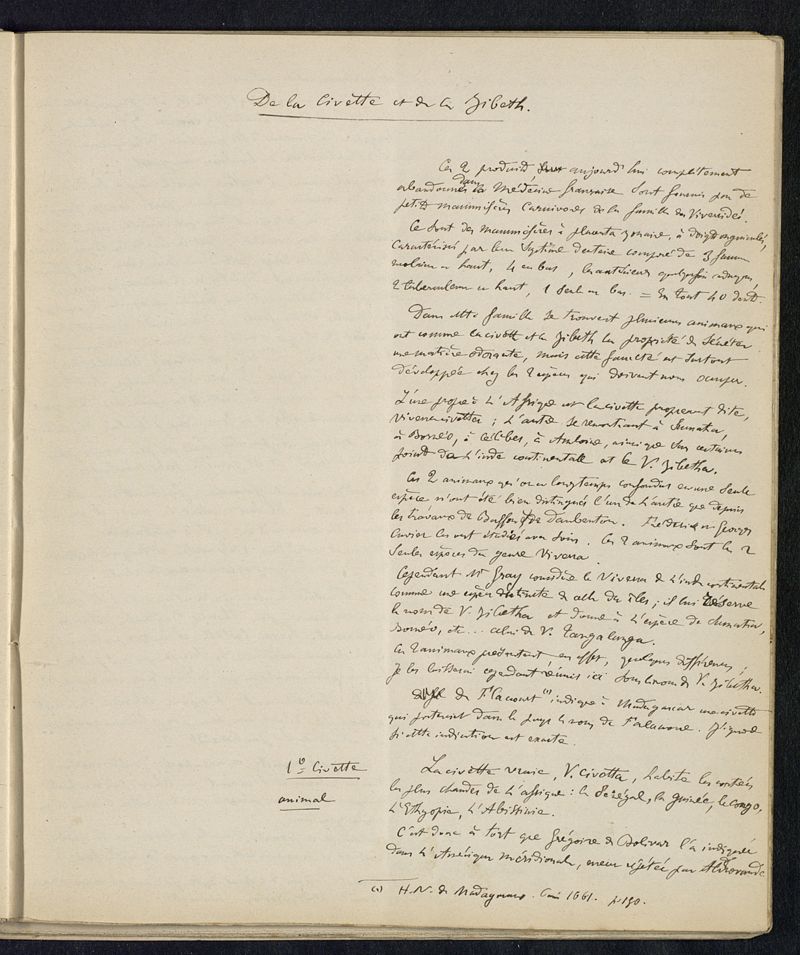 De la Civette et de la Zibeth.
Ces 2 produits, aujourd'hui complètement
abandonnés dans la Médecine française sont fournis par de
petits mammifères Carnivores de la famille des Viverridés.
Ce sont des mammifères à placenta zonaire, à doigts onguiculés,
caractérisés par leur système dentaire composé de 3 fausses
molaires en haut, 4 en bas, les antérieures quelquefois caduques,
2 tuberculeuses en haut, 1 seule en bas. = En tout 40 dents.
Dans cette famille se trouvent plusieurs animaux qui
ont comme la civette et la Zibeth la propriété de sécréter
une matière odorante, mais cette faculté est surtout
développée chez les 2 espèces qui doivent nous occuper.
L'une propre à l'Afrique est la civette proprement dite,
Viverra civetta; l'autre se rencontrant à Sumatra,
à Bornéo, à Célèbes, à Amboine, ainsi que sur certains
points de l'Inde continentale est le V. Zibetha.
Ces 2 animaux qu'on a longtemps confondus en une seule
espèce n'ont été bien distingués l'un de l'autre que depuis
les travaux de Buffon & de Daubenton. Frédéric et Georges
Cuvier les ont étudiés avec soin. Ces 2 animaux sont les 2
seules espèces du genre Viverra.
Cependant Mr Gray considère le Viverra de l'Inde continentale
comme une espèce distincte de celle des îles; il lui réserve
le nom de V. Zibetha et donne à l'espèce de Sumatra,
Bornéo, etc... celui de V. Tangalunga.
Ces 2 animaux présentent en effet, quelques différences;
je les laisserai cependant réunis ici sous le nom de V. Zibetha.
de Flacourt (1) indique à Madagascar une civette
qui porterait dans le pays le nom de Falanoue. J'ignore
si cette indication est exacte.
1º Civette
animal
La civette vraie, V. Civetta, habite les contrées
les plus chaudes de l'Afrique: le Sénégal, la Guinée, le Congo,
l'Ethyopie, l'Abissinie.
C'est donc à tort que Grégoire de Bolivar l'a indiquée
dans l'Amérique méridionale, erreur répétée par Aldrovande
(1) H. N. de Madagascar. 1661. p 150.